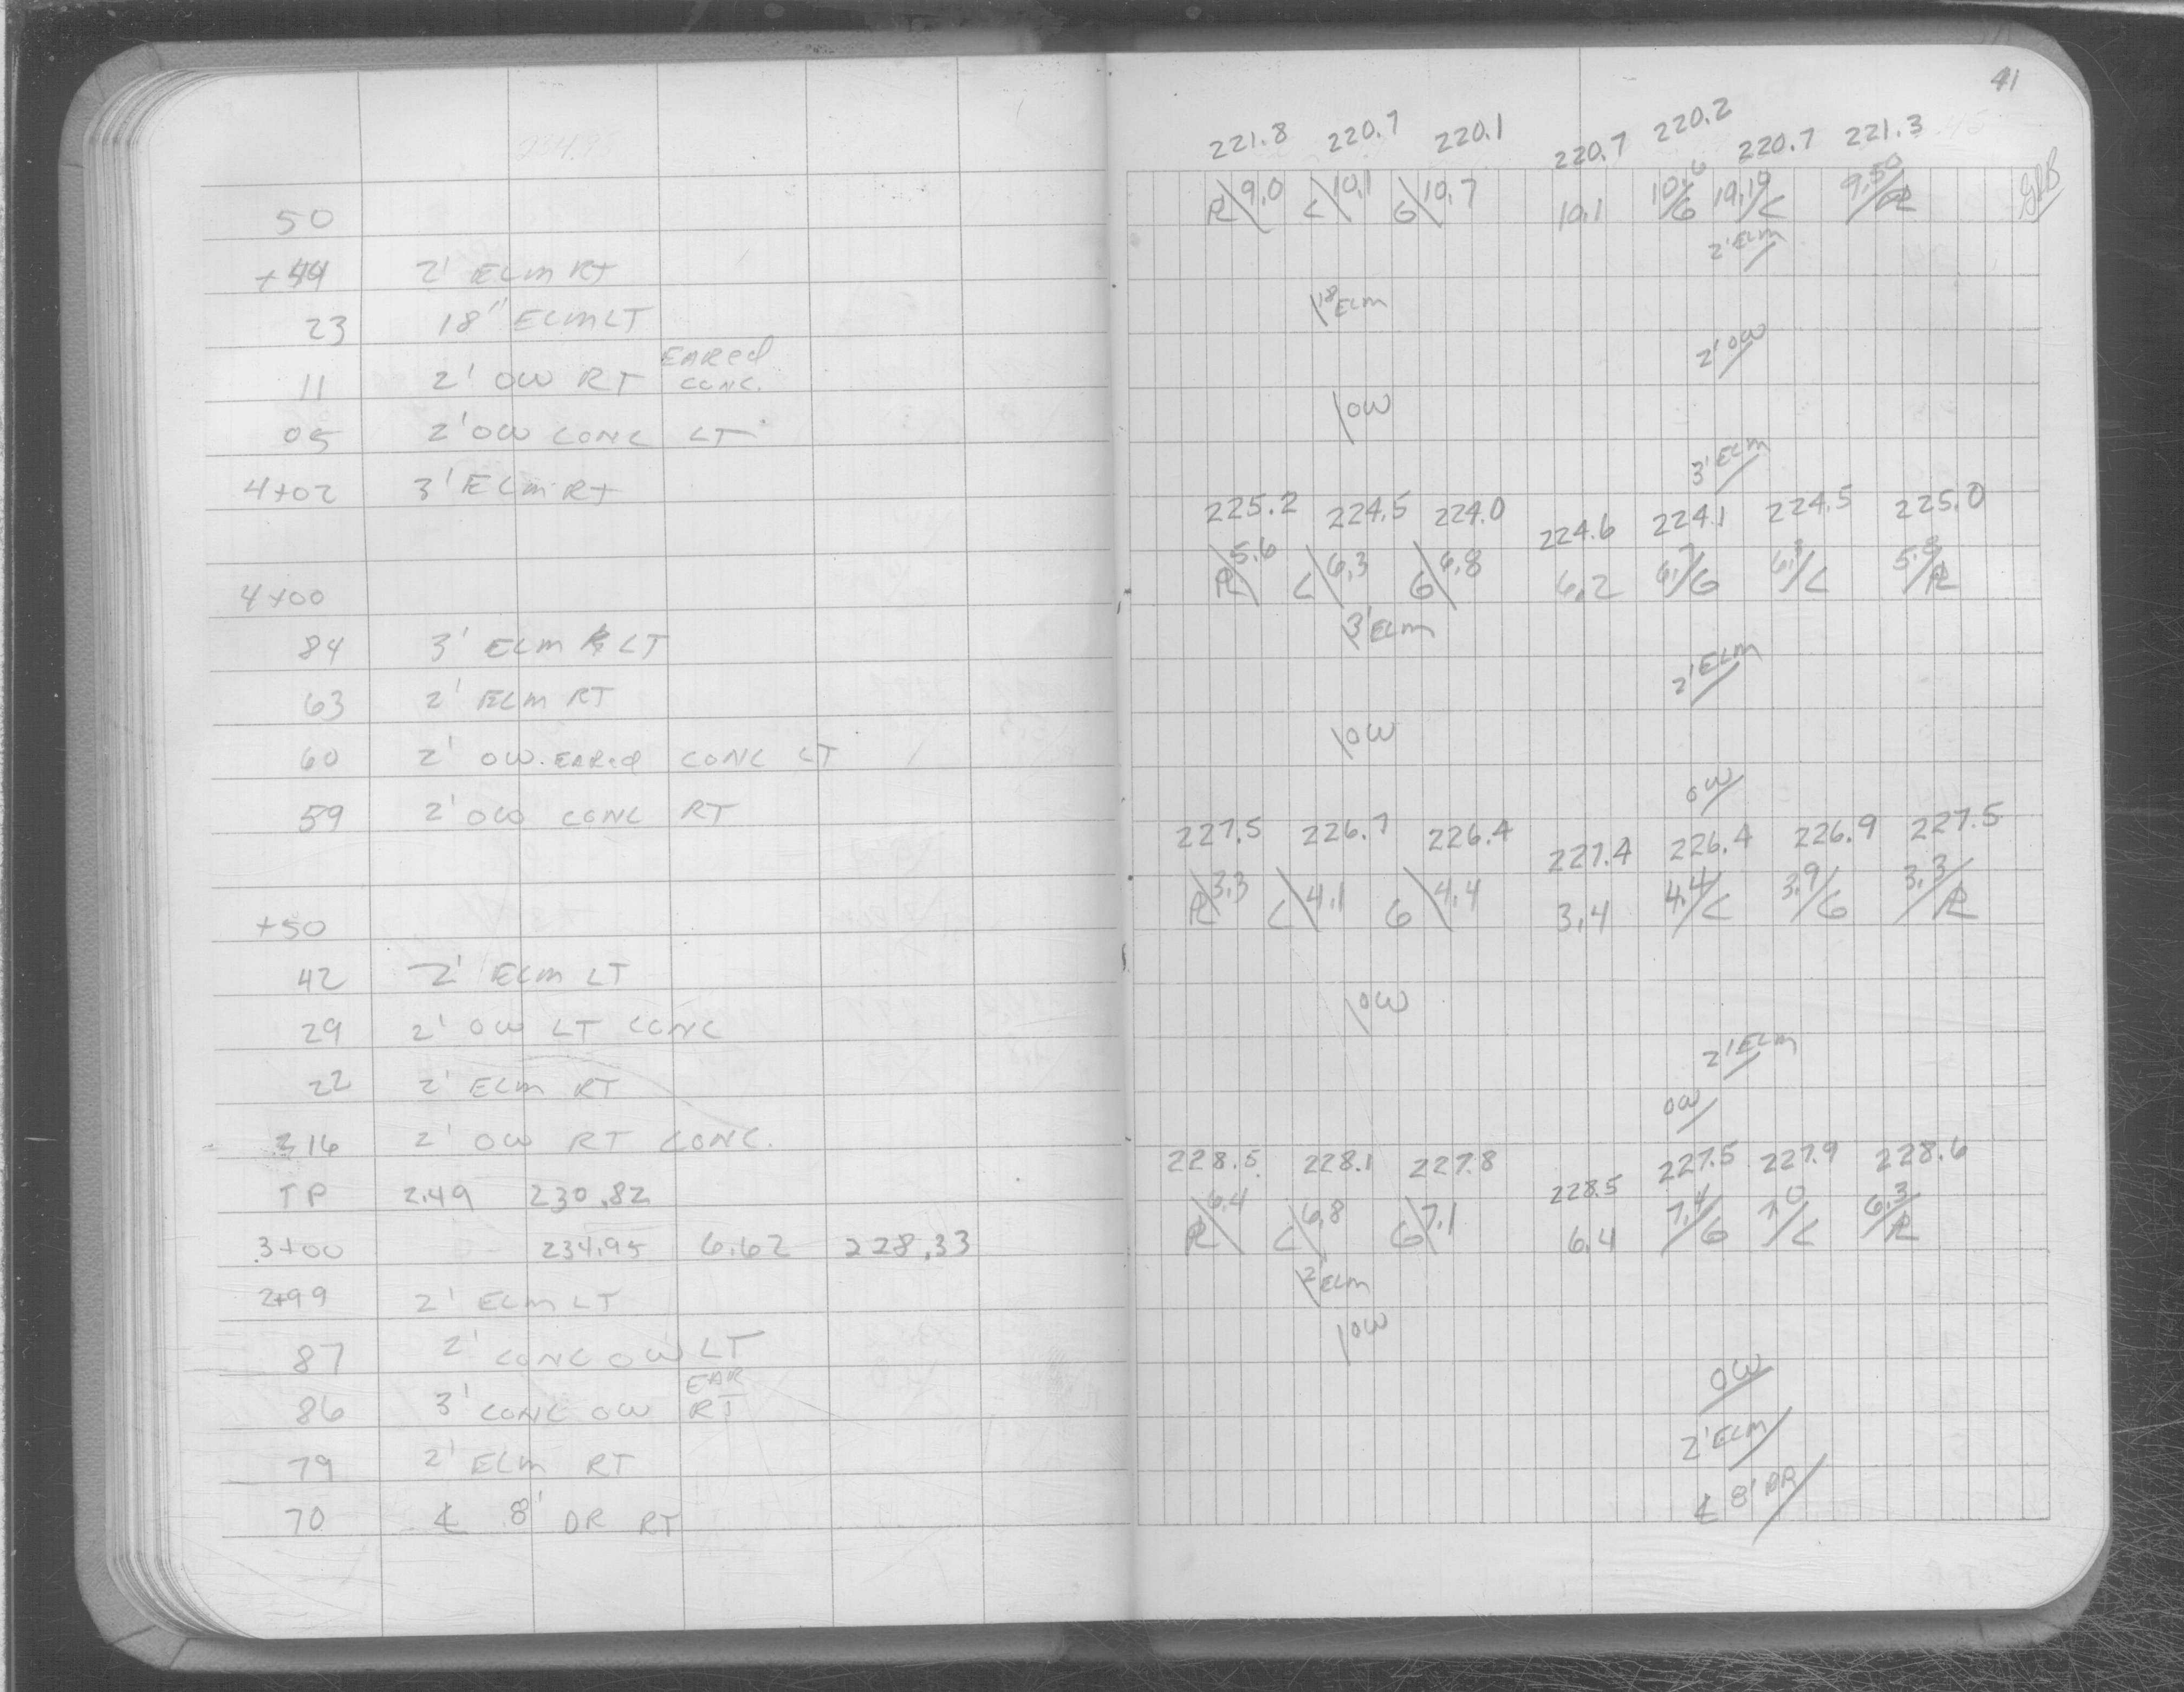 50
+44 2' ELM RT
23 18" ELM LT
11 2' OW RT EARed CONC.
05 2' OW CONC LT
4+02 3' ELM RT
4+00
84 3' ELM LT
63 2' ELM RT
60 2' OW. EARed CONC LT
59 2' OW CONC RT
+50
42 2' ELM LT
29 2' OW LT CONC
22 2' ELM RT
316 2' OW RT CONC.
TP 2.49 230.82
3+00 234.95 6.62 228.33
2+99 2' ELM LT
87 2' CONC OW LT
86 3' CONC OW EAR RT
79 2' ELM RT
70 ℄ 8' DR RT
41
221.8 220.7 220.1 220.7 220.2 220.7 221.3
R\9.0 C\10.1 G\10.7 10.1 10.6/G 10.10/C 9.50/R
2' ELM/
\18 ELM
2' OW/
\OW
3' ELM/
225.2 224.5 224.0 224.6 224.1 224.5 225.0
R\5.6 C\6.3 G\6.8 6.2 6.7/G 6.3/C 5.8/R
\3' ELM
2' ELM/
\OW
OW/
227.5 226.7 226.4 227.4 226.4 226.9 227.5
R\3.3 C\4.1 G\4.4 3.4 4.4/C 3.9/G 3.3/R
\OW
2' ELM/
OW/
228.5 228.1 227.8 228.5 227.5 227.9 228.6
R\6.4 C\6.8 G\7.1 6.4 7.4/G 7.0/C 6.3/R
\2' ELM
\OW
OW/
2' ELM/
℄ 8' DR/